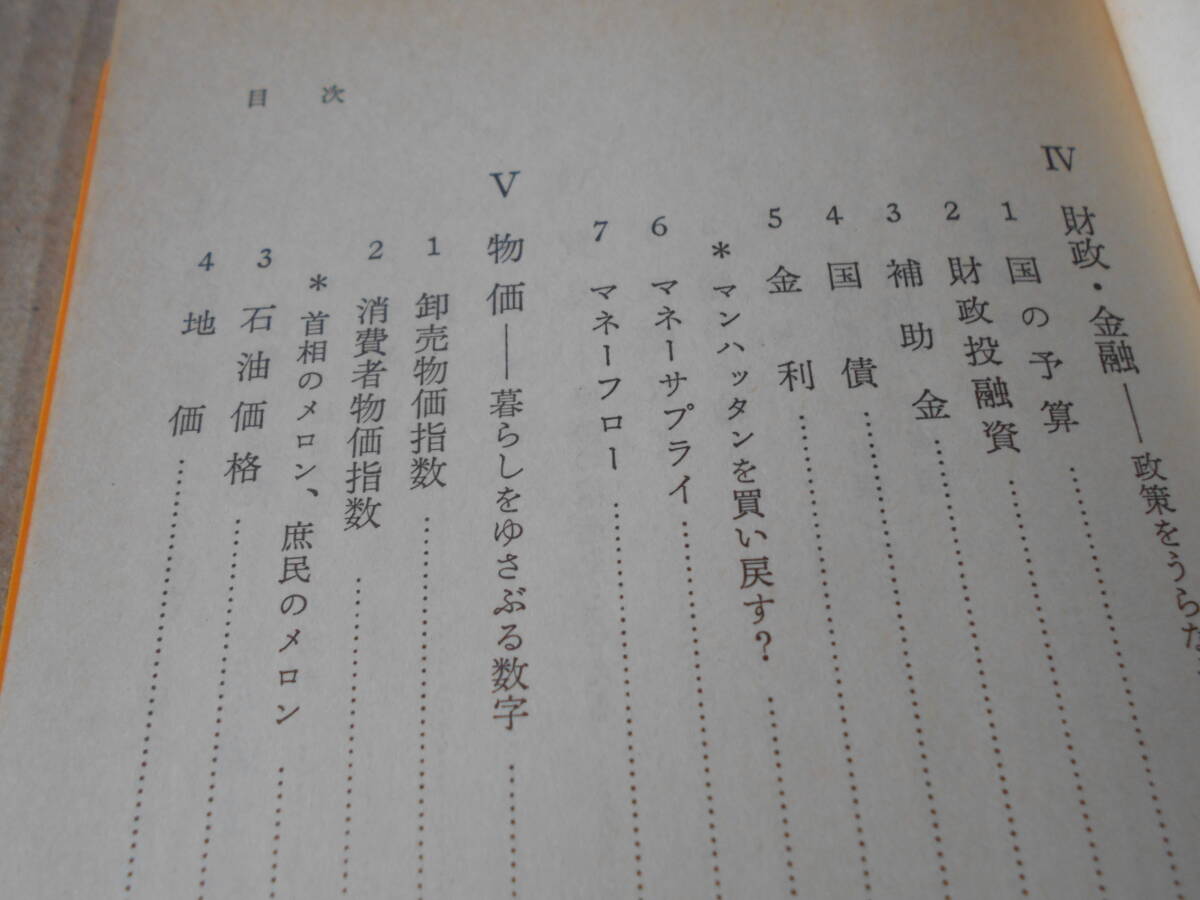 目次
Ⅳ 財政・金融——政策をうらな
1 国の予算
2 財政投融資
3 補助金
4 国債
5 金利
*マンハッタンを買い戻す?
6 マネーサプライ
7 マネーフロー
Ⅴ 物価——暮らしをゆさぶる数字
1 卸売物価指数
2 消費者物価指数
*首相のメロン、庶民のメロン
3 石油価格
4 地価